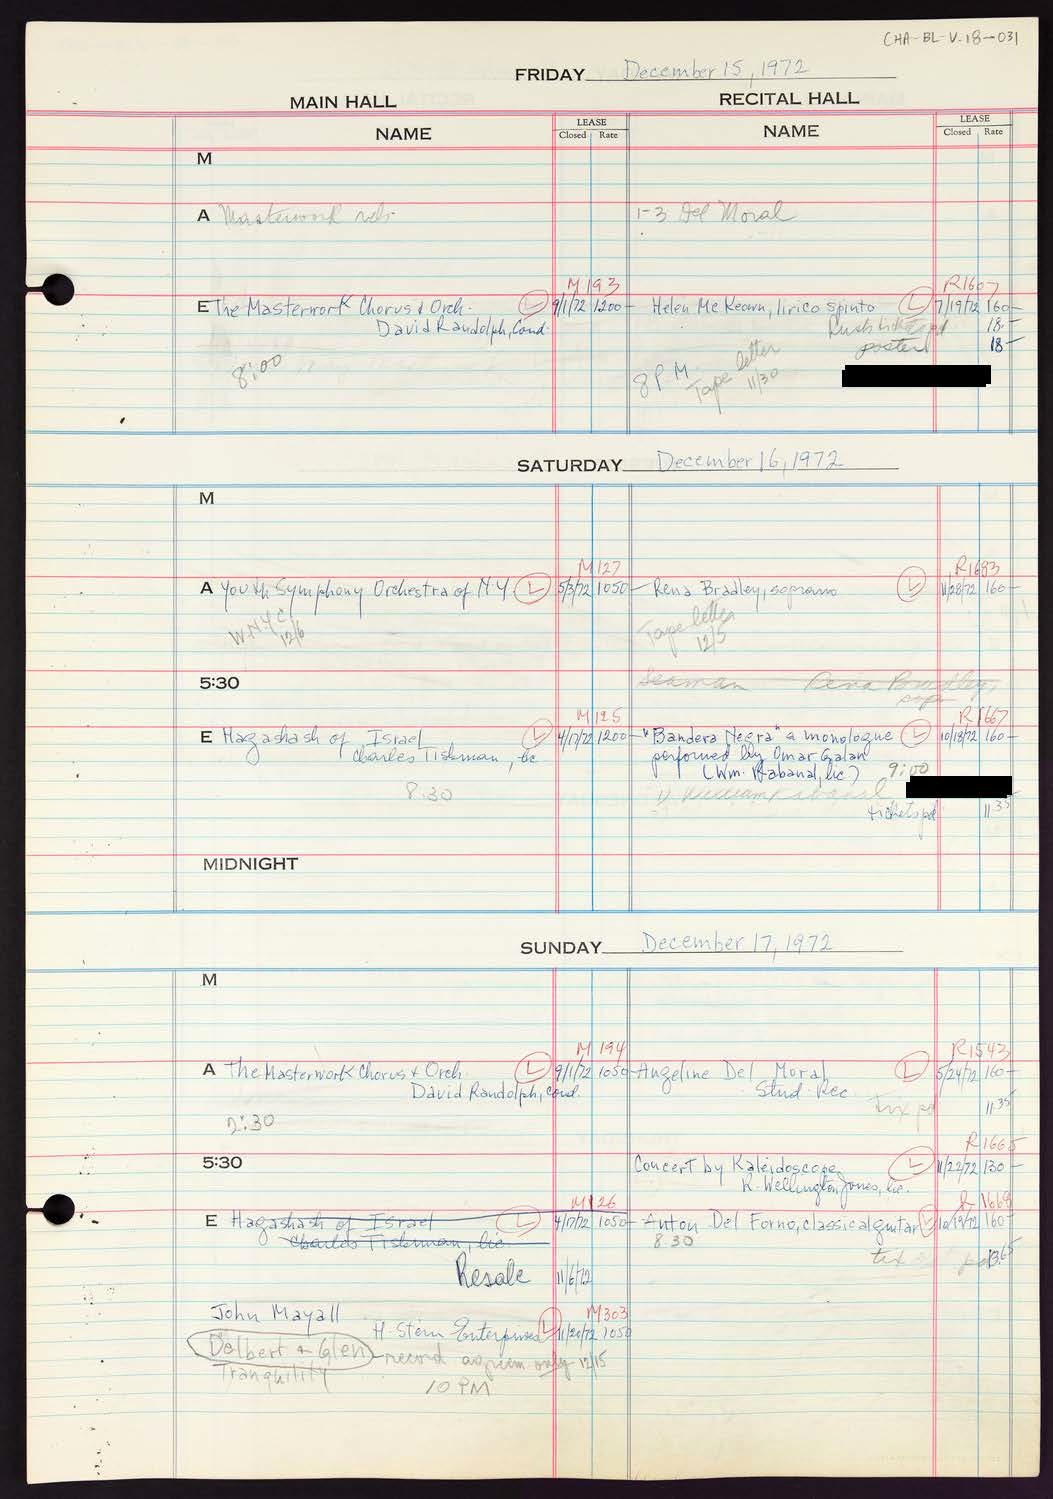 CHA-BL-V.18-031
FRIDAY December 15, 1972
MAIN HALL RECITAL HALL
NAME LEASE Closed Rate NAME LEASE Closed Rate
M
A Masterwork reh. 1-3 Del Moral
M193 R1607
E The Masterwork Chorus & Orch. L 9/1/72 1200- Helen McKeown, lirico spinto L 7/19/72 160-
David Randolph, Cond. 18-
poster 18-
8:00 8 PM Tape letter 11/30
SATURDAY December 16, 1972
M
M127 R1683
A Youth Symphony Orchestra of N.Y. L 5/3/72 1050- Rena Bradley, soprano L 11/28/72 160-
WNYC 12/6 Tape letter 12/5
5:30 Seaman Rena Bradley, sop.
M125 R1667
E Hagashash of Israel L 4/17/72 1200- "Bandera Negra" a monologue L 10/18/72 160-
Charles Tishman, lic performed by Omar Galan
(Wm. Rabanal, lic) 9:00
8:30 William Rabanal
tickets pd 11.35
MIDNIGHT
SUNDAY December 17, 1972
M
M194 R1543
A The Masterwork Chorus & Orch. L 9/1/72 1050- Angeline Del Moral L 5/24/72 160-
David Randolph, cond. Stud. Rec.
tix pd 11.35
2:30
R1665
5:30 Concert by Kaleidoscope L 11/22/72 130-
R. Wellington Jones, lic.
M126 R1669
E Hagashash of Israel L 4/17/72 1050- Anton Del Forno, classical guitar L 10/19/72 160-
Charles Tishman, lic. 8:30
tix pd 13.65
Resale 11/6/72
John Mayall M303
H. Stern Enterprises L 11/20/72 1050
Delbert & Glen record agreem only 12/15
Tranquility
10 PM